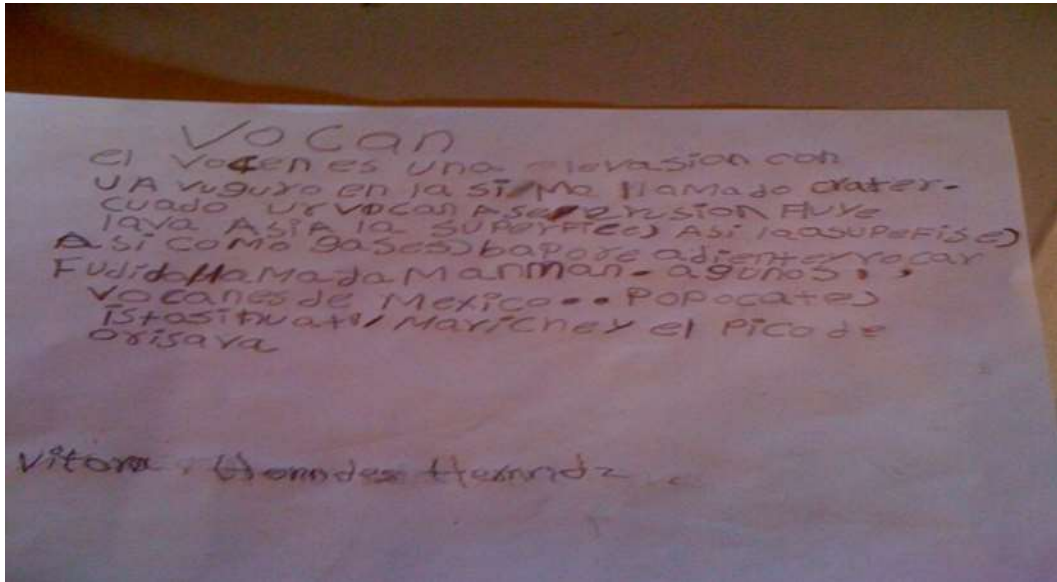 Vocan
el Vocen es una elevasion con
UA vuguro en la sima llamado crater.
cuado ur vocan Ase erusion Fluye
lava AsiA la superfice) Asi laasuperfise)
Asi como gases) bapore adiente rocar
Fudida llamada manman. agunos,,
Vocanes de Mexico.. Popocate)
istasihuatl, Mariche y el Pico de
orisava
Vitora. Herndez